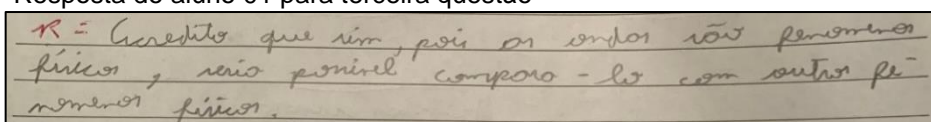 Resposta do aluno 01 para terceira questão
R = Acredito que sim, pois as ondas são fenomenos
físicos, seria possível comparo-lo com outros fe-
nomenos físicos.